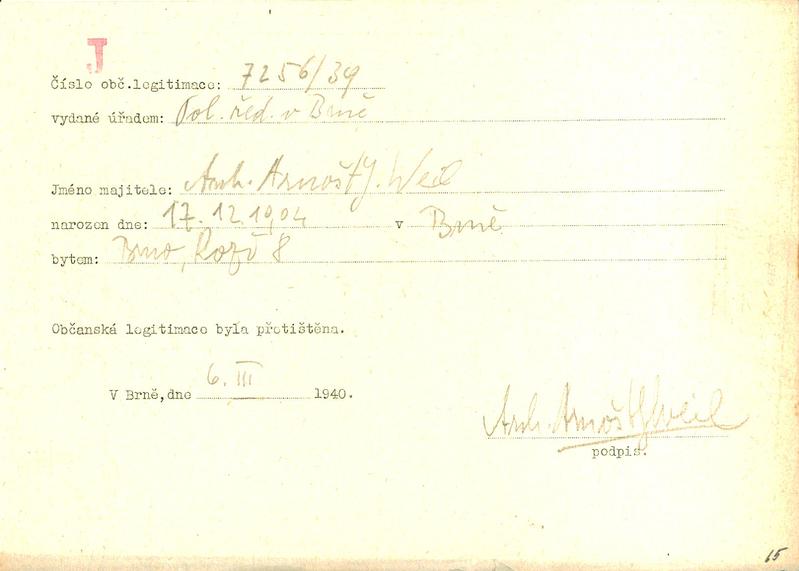 J
Číslo obč.legitimace: 7256/39
vydané úřadem: Pol. řed. v Brně
Jméno majitele: Arch. Arnošt J. Weil
narozen dne: 17. 12. 1904 v Brně
bytem: Brno, 8
Občanská legitimace byla přetištěna.
V Brně, dne 6. III 1940.
Arch. Arnošt J. Weil
podpis.
15